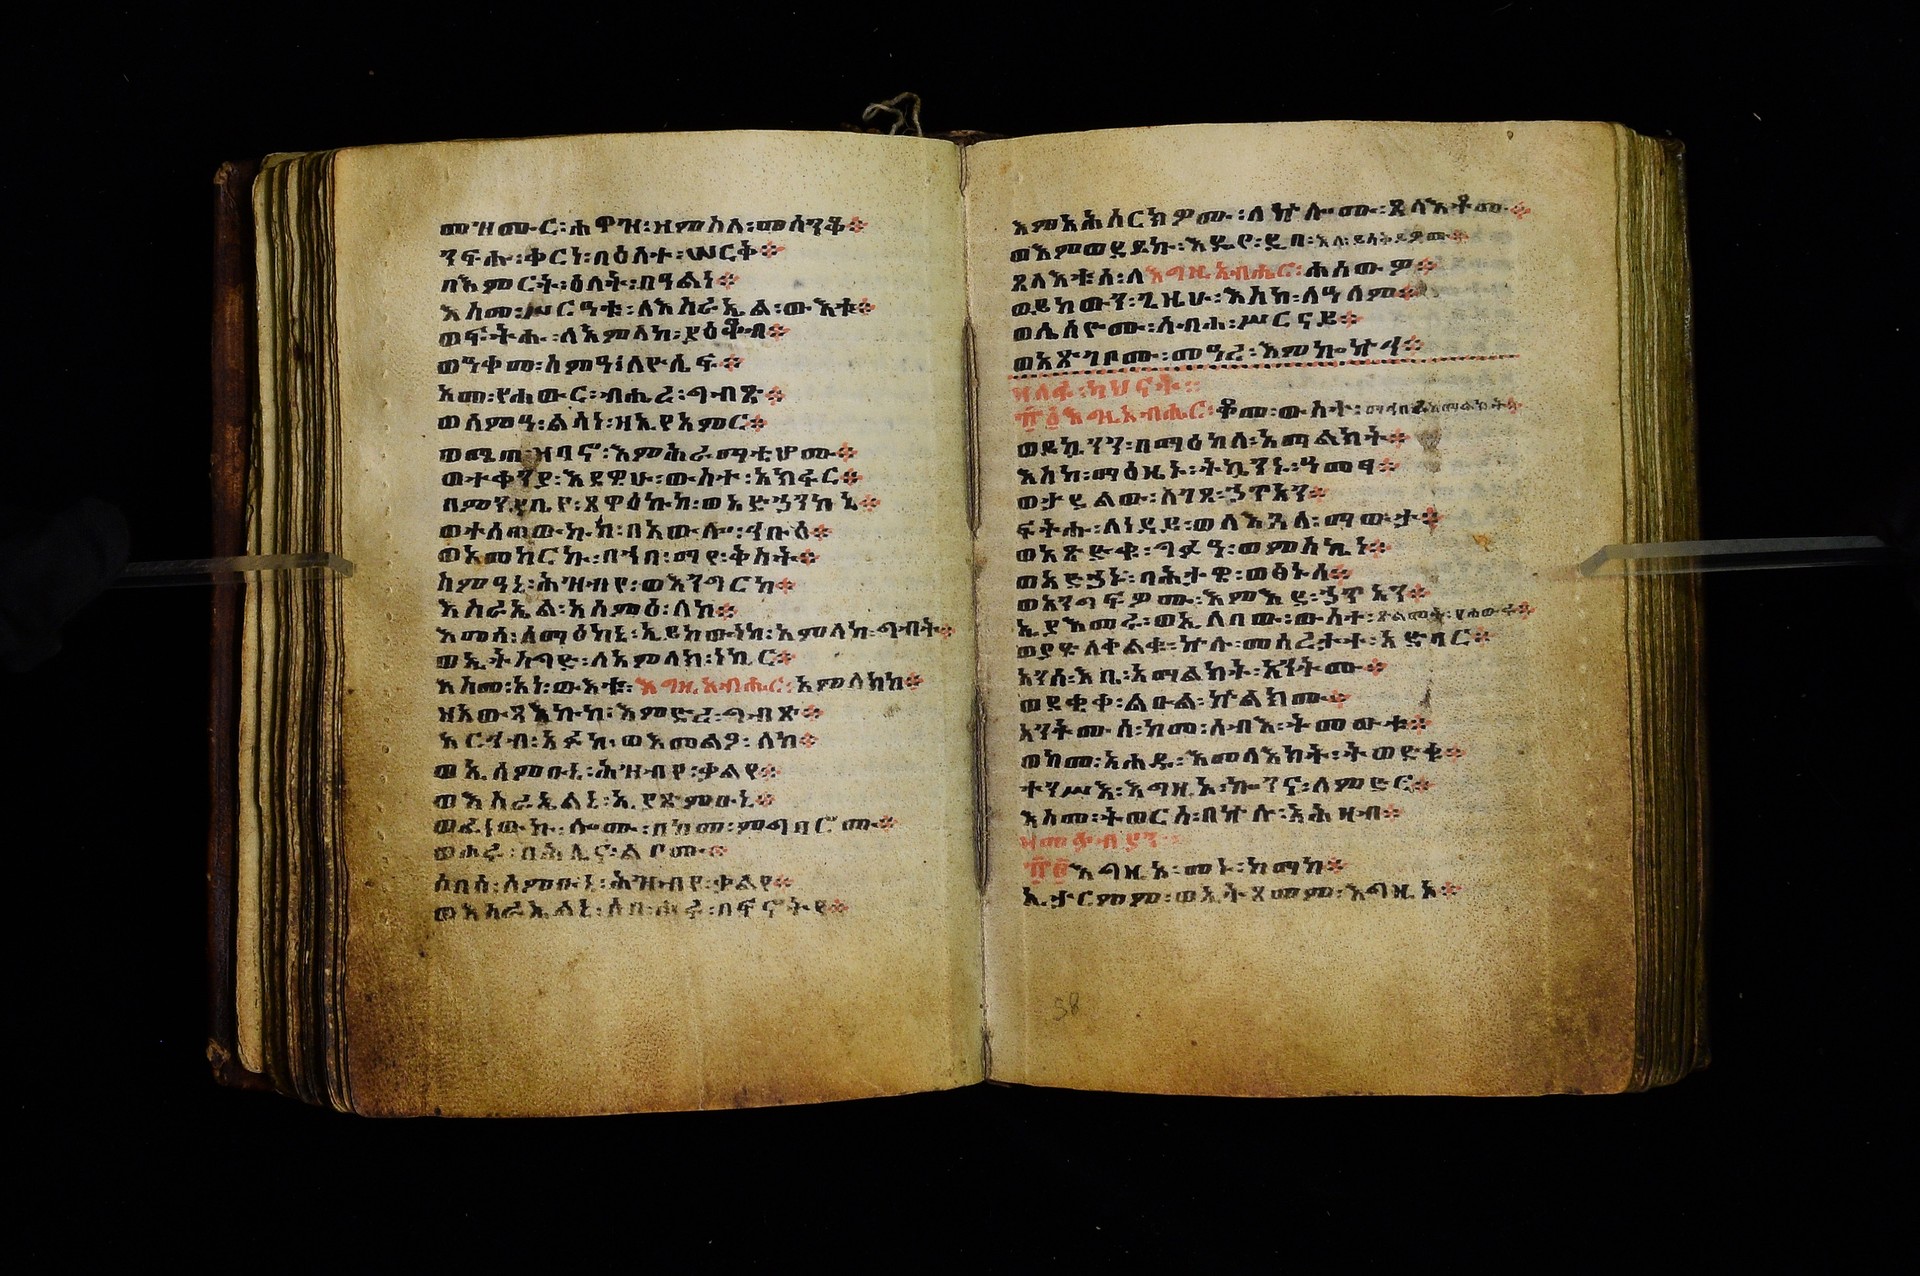 መዝሙር፡ሐዋዝ፡ዝምስለ፡መሰንቆ።
ንፍሑ፡ቀርነ፡በዕለተ፡ሠርቅ።
በእምርት፡ዕለት፡በዓልነ።
እስመ፡ሥርዓቱ፡ለእስራኤል፡ውእቱ።
ወፍትሑ፡ለአምላከ፡ያዕቆብ።
ወዓቀመ፡ስምዓ፡ለዮሴፍ።
አመ፡የሐውር፡ብሔረ፡ግብጽ።
ወሰምዓ፡ልሳነ፡ዘኢየአምር።
ወሜጠ፡ዝባኖ፡እምሕራማቲሆሙ።
ወተቀንያ፡እደዊሁ፡ውስተ፡አክፋር።
በምንዳቤየ፡ጸዋዕኩከ፡ወአድኃንከኒ።
ወተሰጠውኩከ፡በአውሎ፡ኅቡዕ።
ወአመከርኩ፡በኀበ፡ማየ፡ቅስት።
ስምዓኒ፡ሕዝብየ፡ወእንግርከ።
እስራኤል፡አስምዕ፡ለከ።
እመሰ፡ሰማዕከኒ፡ኢይከውነከ፡አምላከ፡ግብት።
ወኢትስግድ፡ለአምላክ፡ነኪር።
እስመ፡አነ፡ውእቱ፡እግዚአብሔር፡አምላክከ።
ዘአውጻእኩከ፡እምድረ፡ግብጽ።
አርኅብ፡አፉከ፡ወእመልዖ፡ለከ።
ወኢሰምዑኒ፡ሕዝብየ፡ቃልየ።
ወእስራኤልኒ፡ኢያጽምዑኒ።
ወፈነውኩ፡ሎሙ፡በከመ፡ምግባሮሙ።
ወሖሩ፡በሕሊና፡ልቦሙ።
ሶበሰ፡ሰምዑኒ፡ሕዝብየ፡ቃልየ።
ወእስራኤልኒ፡ሶበ፡ሖሩ፡በፍኖትየ።
እምአሕሰርክዎሙ፡ለኵሎሙ፡ጸላእቶሙ።
ወእምወደይኩ፡እዴየ፡ዲበ፡እለ፡ይሣቅይዎሙ።
ጸላእቱሰ፡ለእግዚአብሔር፡ሐሰውዎ።
ወይከውን፡ጊዜሁ፡እስከ፡ለዓለም።
ወሴሰዮሙ፡ሰብሐ፡ሥርናይ።
ወአጽገቦሙ፡መዓረ፡እምኰኵሕ።
ዘአሳፍ፡ካህናት።
፹፩እግዚአብሔር፡ቆመ፡ውስተ፡ማኅበረ፡አማልክት።
ወይኬንን፡በማዕከለ፡አማልክት።
እስከ፡ማዕዜኑ፡ትኴንኑ፡ዓመፃ።
ወታደልው፡ለገጸ፡ኃጥአን።
ፍትሑ፡ለነዳይ፡ወለእጓለ፡ማውታ።
ወአጽድቁ፡ግፉዓ፡ወምስኪነ።
ወአድኃኑ፡ባሕታዌ፡ወፅኑሰ።
ወአንግፍዎሙ፡እምእደ፡ኃጥአን።
ኢያእመሩ፡ወኢለበው፡ውስተ፡ጽልመት፡የሐውሩ።
ወያድለቀልቁ፡ኵሉ፡መሰረታተ፡ለምድር።
አንሰ፡እቤ፡አማልክት፡አንትሙ።
ወደቂቀ፡ልዑል፡ኵልክሙ።
አንትሙሰ፡ከመ፡ሰብእ፡ትመውቱ።
ወከመ፡አሐዱ፡እመላእክት፡ትወድቁ።
ተንሥእ፡እግዚኦ፡ኰንና፡ለምድር።
እስመ፡ትወርስ፡በኵሉ፡አሕዛብ።
፹፪እግዚኦ፡መኑ፡ከማከ።
ኢታርምም፡ወኢትጸመም፡እግዚኦ።